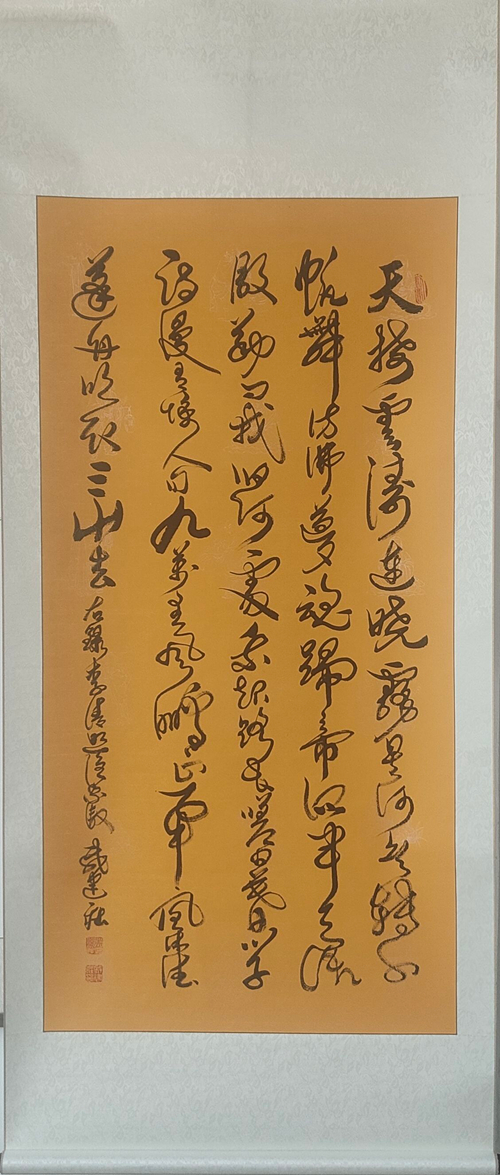 天接雲濤連曉霧星河欲轉千
帆舞仿佛夢魂歸帝所聞天語
殷勤問我歸何處我報路長嗟日暮學
詩謾有驚人句九萬里風鵬正舉風休住
蓬舟吹取三山去 右錄李清照漁家傲